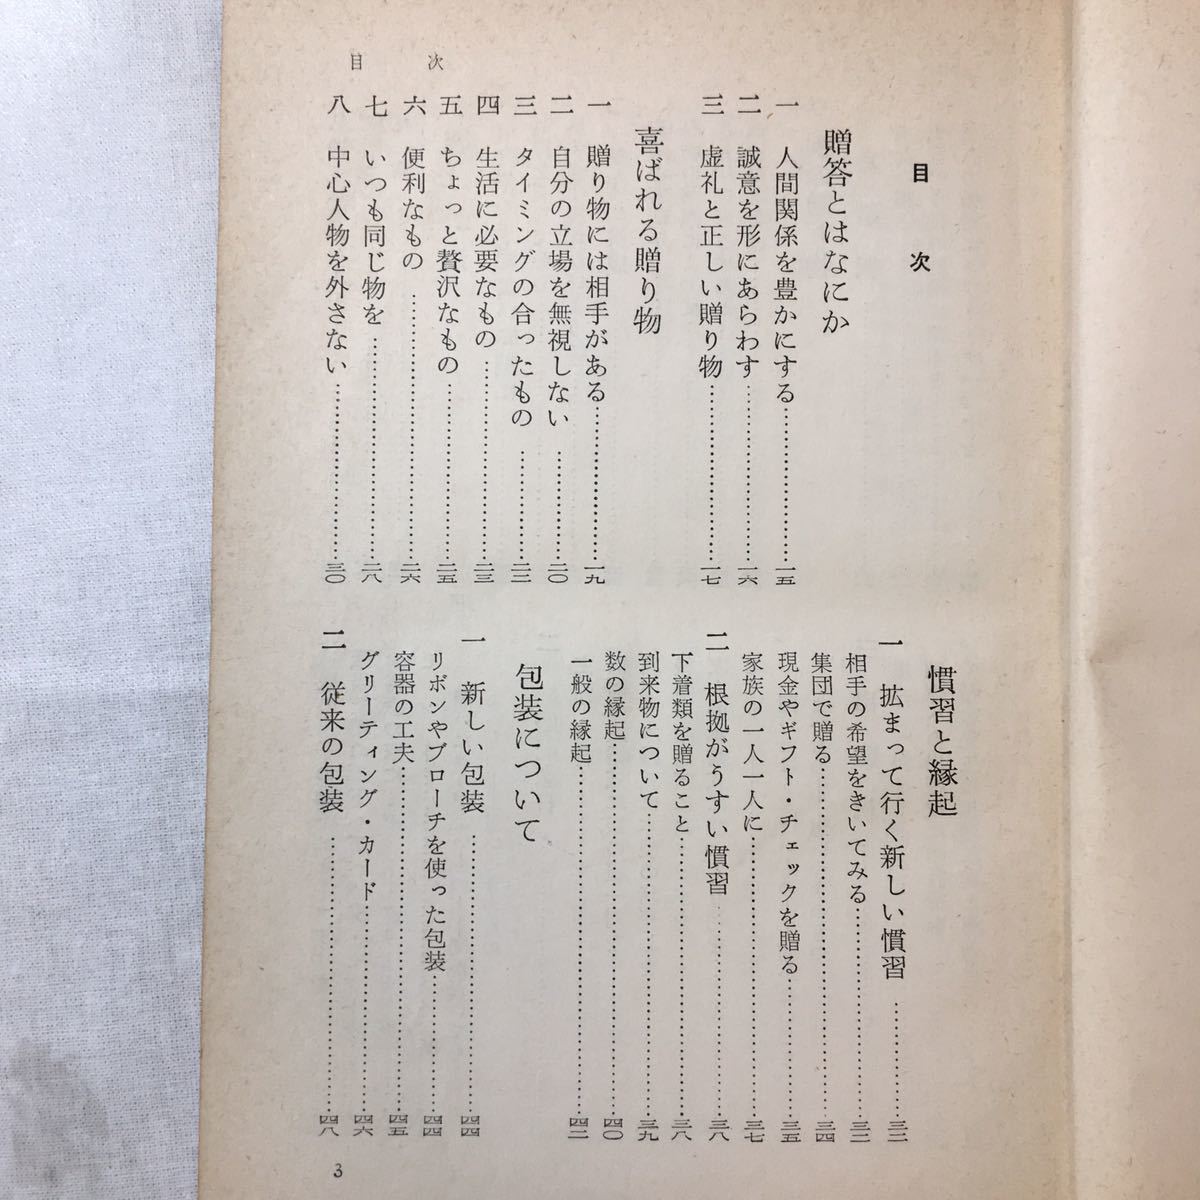 目次
目次
贈答とはなにか
一 人間関係を豊かにする……………一五
二 誠意を形にあらわす……………一六
三 虚礼と正しい贈り物……………一七
喜ばれる贈り物
一 贈り物には相手がある……………一九
二 自分の立場を無視しない……………二〇
三 タイミングの合ったもの……………二二
四 生活に必要なもの……………二三
五 ちょっと贅沢なもの……………二五
六 便利なもの……………二六
七 いつも同じ物を……………二八
八 中心人物を外さない……………三〇
慣習と縁起
一 拡まって行く新しい慣習……………三二
相手の希望をきいてみる……………三二
集団で贈る……………三四
現金やギフト・チェックを贈る……………三五
家族の一人一人に……………三七
二 根拠がうすい慣習……………三八
下着類を贈ること……………三八
到来物について……………三九
数の縁起……………四〇
一般の縁起……………四二
包装について
一 新しい包装……………四四
リボンやブローチを使った包装……………四四
容器の工夫……………四五
グリーティング・カード……………四六
二 従来の包装……………四八
3